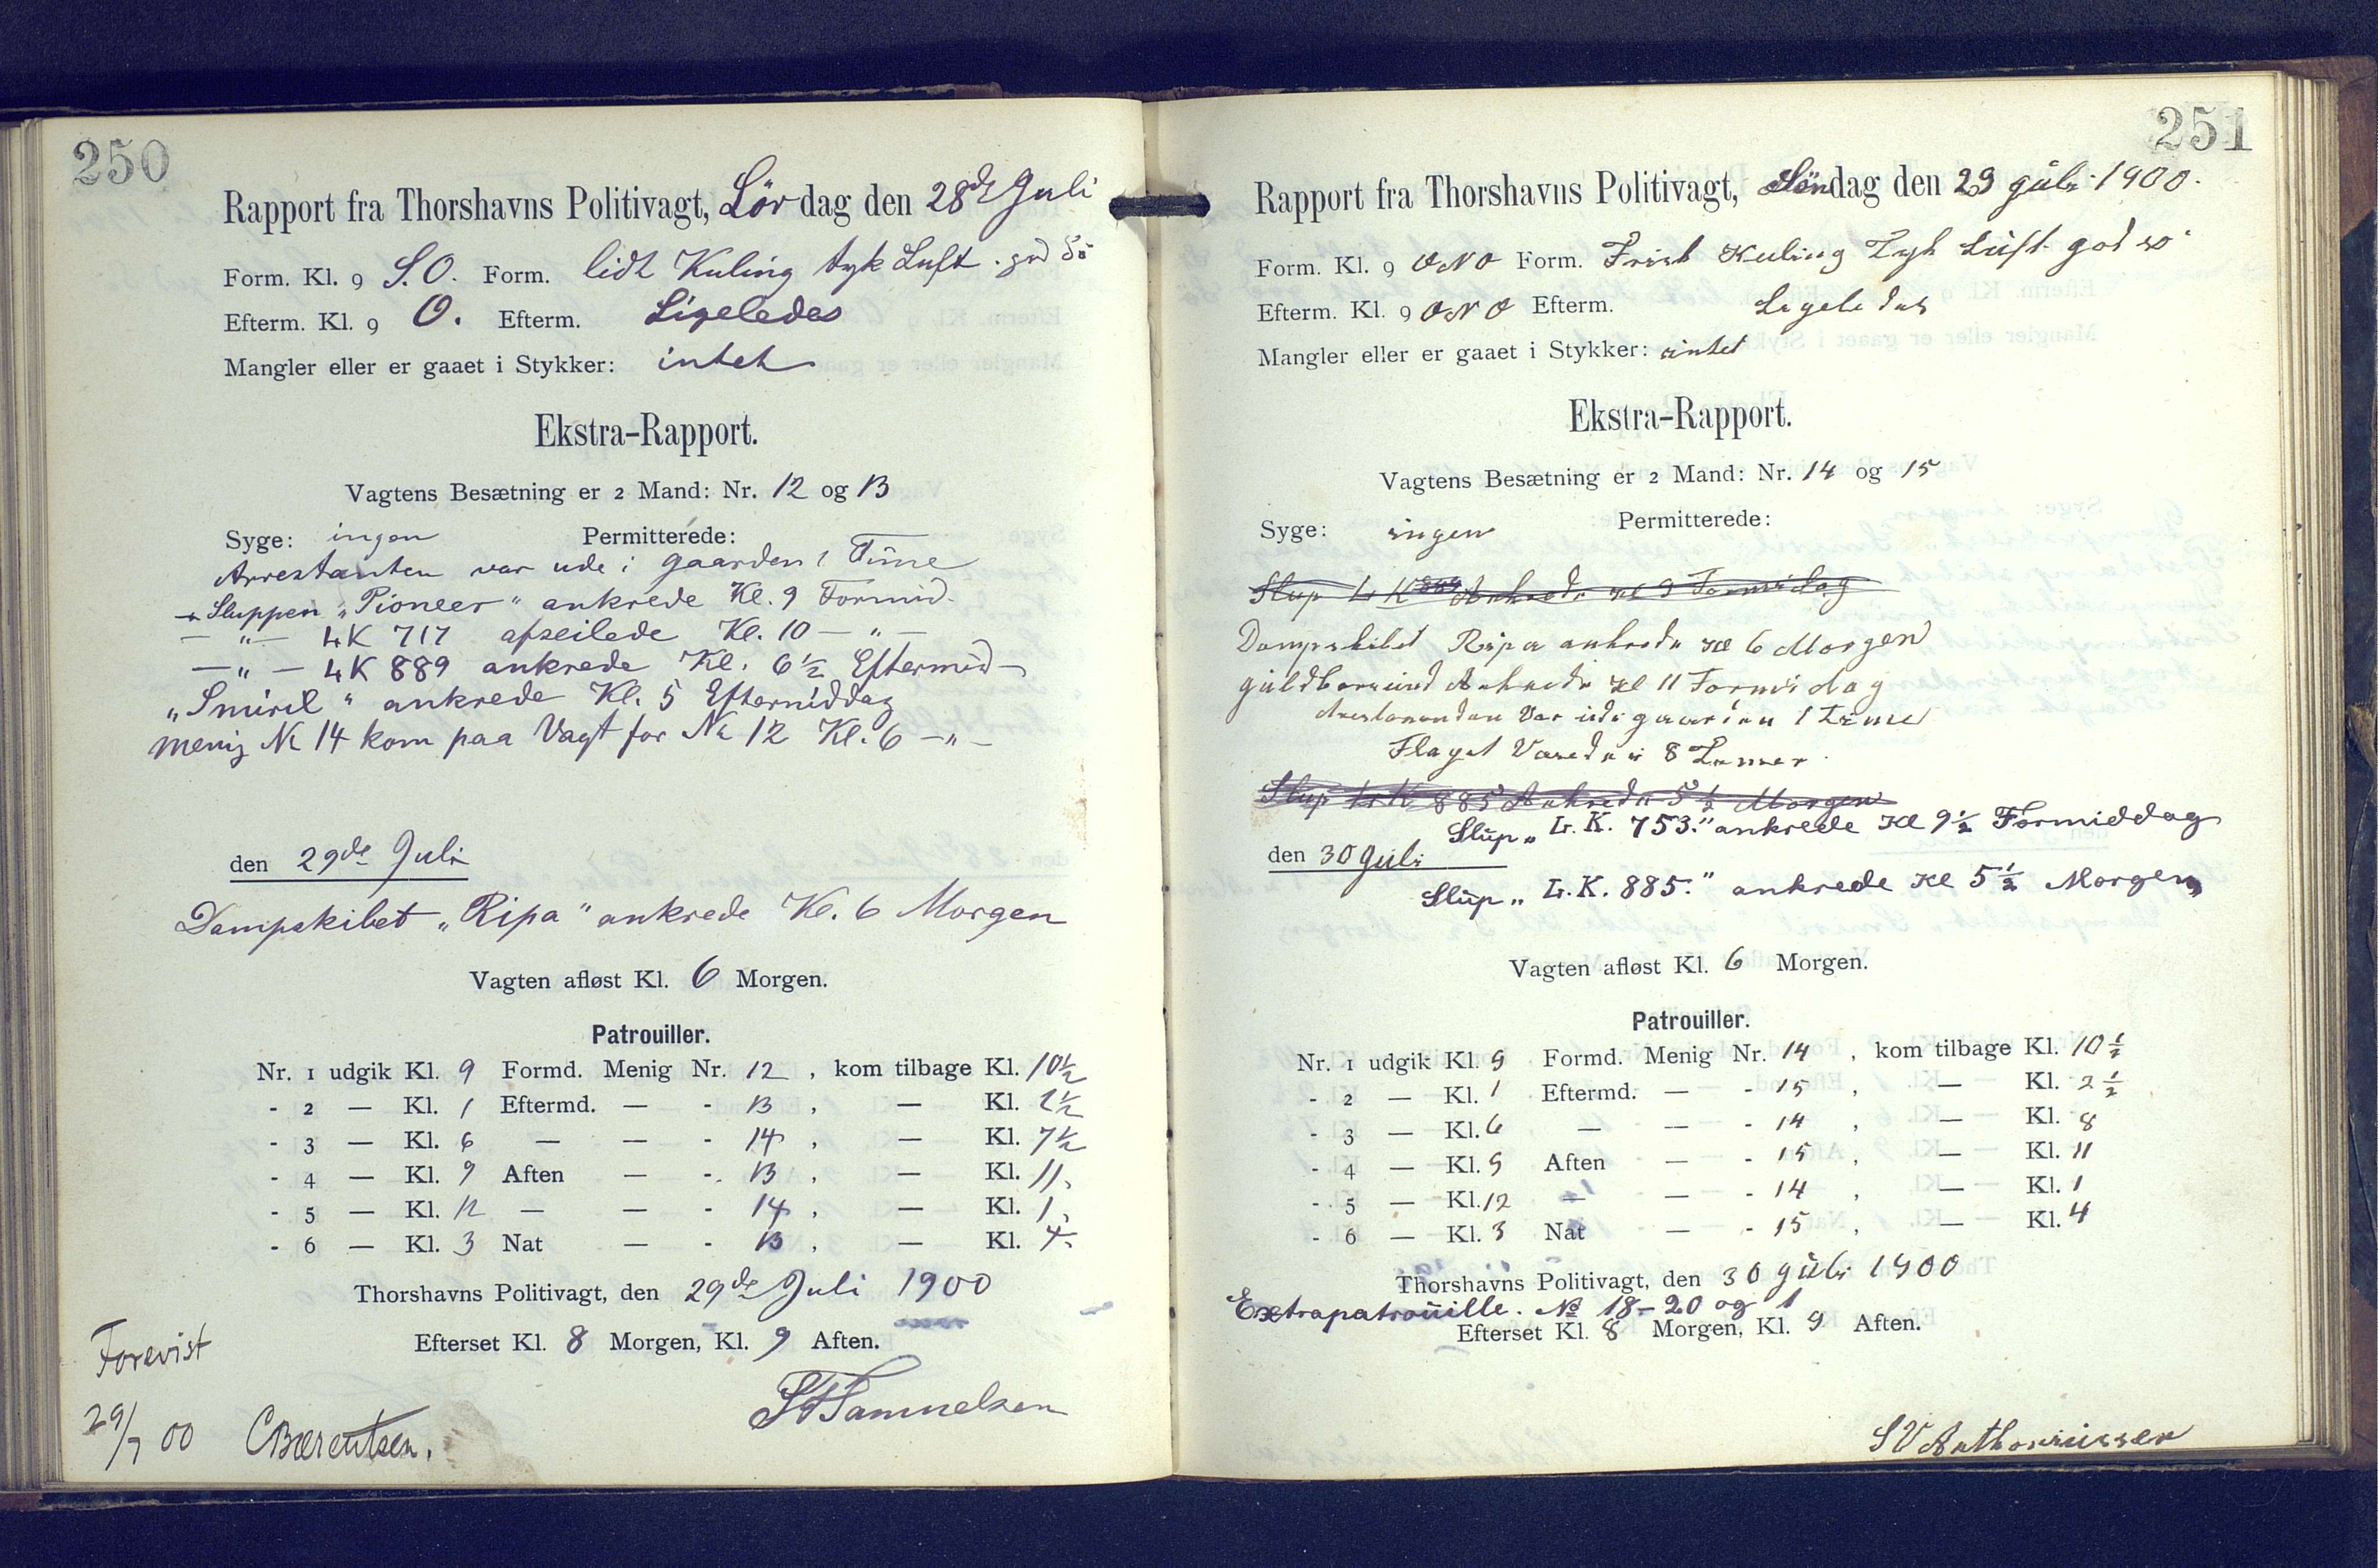 250
Rapport fra Thorshavns Politivagt, Lördag den 28de Juli
Form. Kl. 9 S.O. Form. lidt Kuling tyk Luft. god Sö
Efterm. Kl. 9 O. Efterm. Ligeledes
Mangler eller er gaaet i Stykker: intet
Ekstra-Rapport.
Vagtens Besætning er 2 Mand: Nr. 12 og 13
Syge: ingen Permitterede:
Arrestanten var ude i Gaarden 1 Time
Sluppen „Pioneer“ ankrede Kl. 9 Formid.
— „ — LK 717 afseilede Kl. 10 — „ —
— „ — LK 889 ankrede Kl. 6½ Eftermid —
„Smiril“ ankrede Kl. 5 Eftermiddag
Menig № 14 kom paa Vagt for № 12 Kl. 6 — „ —
den 29de Juli
Dampskibet „Ripa“ ankrede Kl. 6 Morgen
Vagten afløst Kl. 6 Morgen.
Patrouiller.
Nr. 1 udgik Kl. 9 Formd. Menig Nr. 12, kom tilbage Kl. 10½
- 2 — Kl. 1 Eftermd. — - 13, — Kl. 2½
- 3 — Kl. 6 — — - 14, — Kl. 7½
- 4 — Kl. 9 Aften — - 13, — Kl. 11.
- 5 — Kl. 12 — — - 14, — Kl. 1.
- 6 — Kl. 3 Nat — - 13, — Kl. 4.
Thorshavns Politivagt, den 29de Juli 1900
Efterset Kl. 8 Morgen, Kl. 9 Aften.
Forevist
29/7 00 CBærentsen.
Samuelsen
251
Rapport fra Thorshavns Politivagt, Söndag den 29 Juli 1900.
Form. Kl. 9 ONO Form. Frisk Kuling Tyk Luft god sö
Efterm. Kl. 9 ONO Efterm. Ligeledes
Mangler eller er gaaet i Stykker: intet
Ekstra-Rapport.
Vagtens Besætning er 2 Mand: Nr. 14 og 15
Syge: ingen Permitterede:
Slup LK Ankrede Kl 9 Formidag
Dampskibet Ripa ankrede Kl 6 Morgen
Guldborsund Ankrede Kl 11 Formidag
Arestanenden Var ude gaarden 1 Time
Flaget Varede i 8 Timer.
Slup LK 885 Ankrede 5½ Morgen
Slup „L.K. 753.“ ankrede Kl 9½ Formiddag
den 30 Juli
Slup „L.K. 885.“ ankrede Kl 5½ Morgen,
Vagten afløst Kl. 6 Morgen.
Patrouiller.
Nr. 1 udgik Kl. 9 Formd. Menig Nr. 14, kom tilbage Kl. 10½
- 2 — Kl. 1 Eftermd. — - 15, — Kl. 2½
- 3 — Kl. 6 — — - 14, — Kl. 8
- 4 — Kl. 9 Aften — - 15, — Kl. 11
- 5 — Kl. 12 — — - 14, — Kl. 1
- 6 — Kl. 3 Nat — - 15, — Kl. 4
Thorshavns Politivagt, den 30 Juli 1900
Extrapatrouille. № 18 - 20 og 1
Efterset Kl. 8 Morgen, Kl. 9 Aften.
SV Anthoniussen